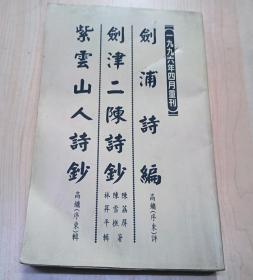 【一九九六年四月重刊】
劍浦詩編
高鏞(序東)評
劍津二陳詩鈔
陳蒻屏
陳雲樵 著
林昇平 輯
紫雲山人詩鈔
高鏞(序東)輯